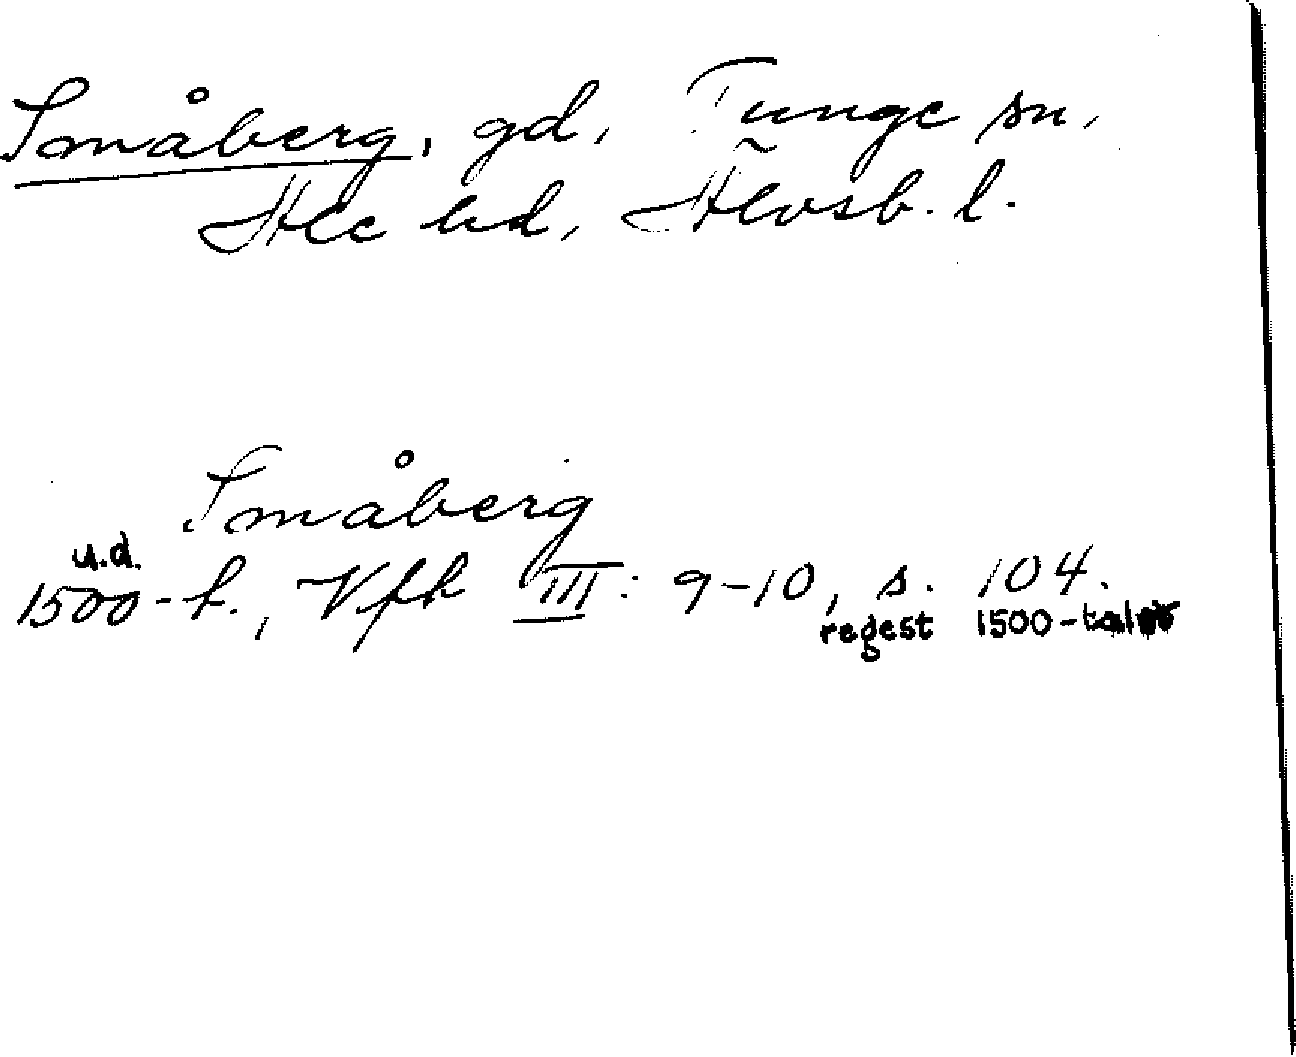 Småberg, gd, Tunge sn,
Ale hd, Älvsb. l.
Småberg
u.d.
1500-t., Vft III: 9-10, s. 104.
regest 1500-talet